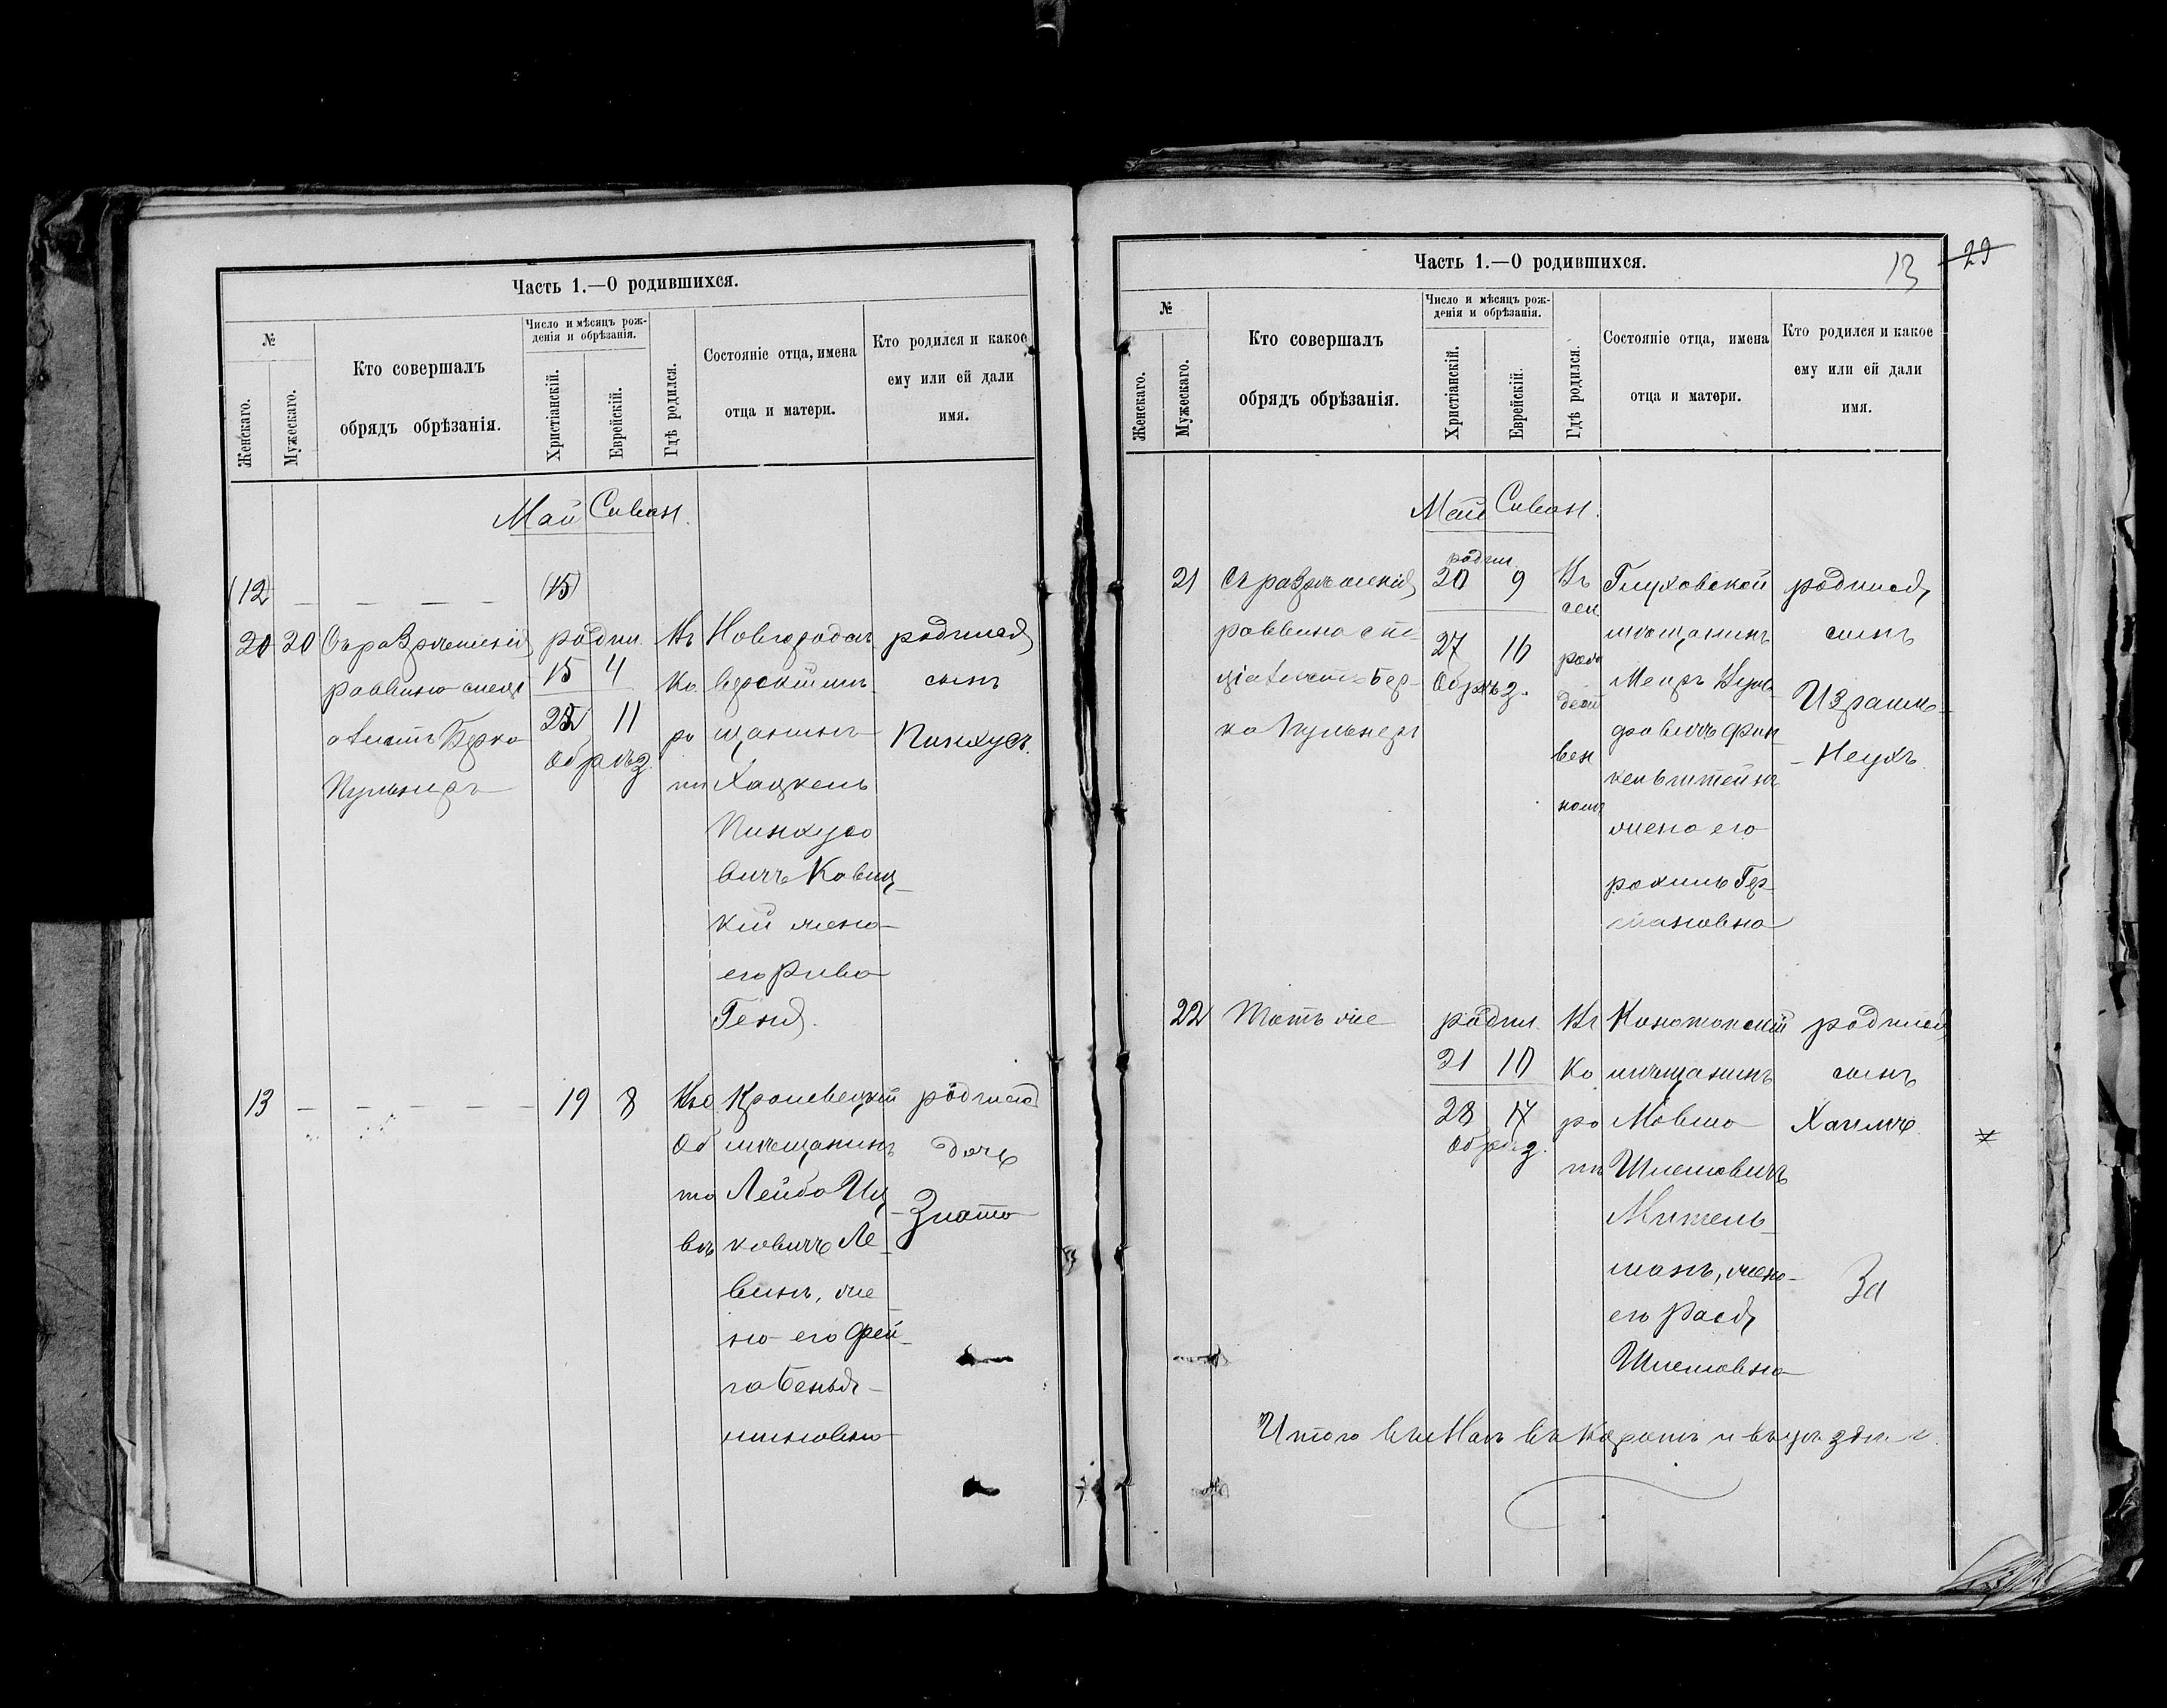 Часть 1.—О родившихся.
№
Женскаго.
Мужескаго.
Кто совершалъ
обрядъ обрѣзанія.
Число и мѣсяцъ рож-
денія и обрѣзанія.
Христіанскій.
Еврейскій.
Гдѣ родился.
Состояніе отца, имена
отца и матери.
Кто родился и какое
ему или ей дали
имя.
Май Сиван.
(12) — — — — (15)
20 20
Съ разрѣшенія
раввина спеці
алистъ Берко
Пульнеръ
родил.
15 4
22 11
обрѣз.
Въ
Ко
ро
пѣ
Новгородъ
верскій мѣ
щанинъ
Хацкель
Пинхусо
вичъ Ковиц
кій жена
его Рива
Геня.
родился
сынъ
Пинхусъ.
13 — — — — — 19 8
Об
то
вѣ
Кролевецкій
мѣщанинъ
Лейба Иц
ковичъ Ле
винъ, же
на его Фей
га Бенья
миновна
родилась
дочь
Злата
Часть 1.—О родившихся.
13 29
№
Женскаго.
Мужескаго.
Кто совершалъ
обрядъ обрѣзанія.
Число и мѣсяцъ рож-
денія и обрѣзанія.
Христіанскій.
Еврейскій.
Гдѣ родился.
Состояніе отца, имена
отца и матери.
Кто родился и какое
ему или ей дали
имя.
Май Сиван.
21
Съ разрѣшенія
раввина спе
ціалистъ Бер
ко Пульнеръ
родил.
20 9
27 16
Обрѣз.
Въ
сел
Глуховской
мѣщанинъ
Меиръ
кельштейнъ
жена его
Рохиль Гер
шановна
родился
сынъ
Израиль
Неухъ
22
Тотъ же
родил.
21 10
28 17
обрѣз.
Въ
Ко
ро
пѣ
Конотопскій
мѣщанинъ
Мовша
Шлемовичъ
Митель
манъ, жена
его Рася
Шлемовна
родился
сынъ
Хаимъ
За
Итого въ Маѣ въ Коропѣ и въ уѣздѣ